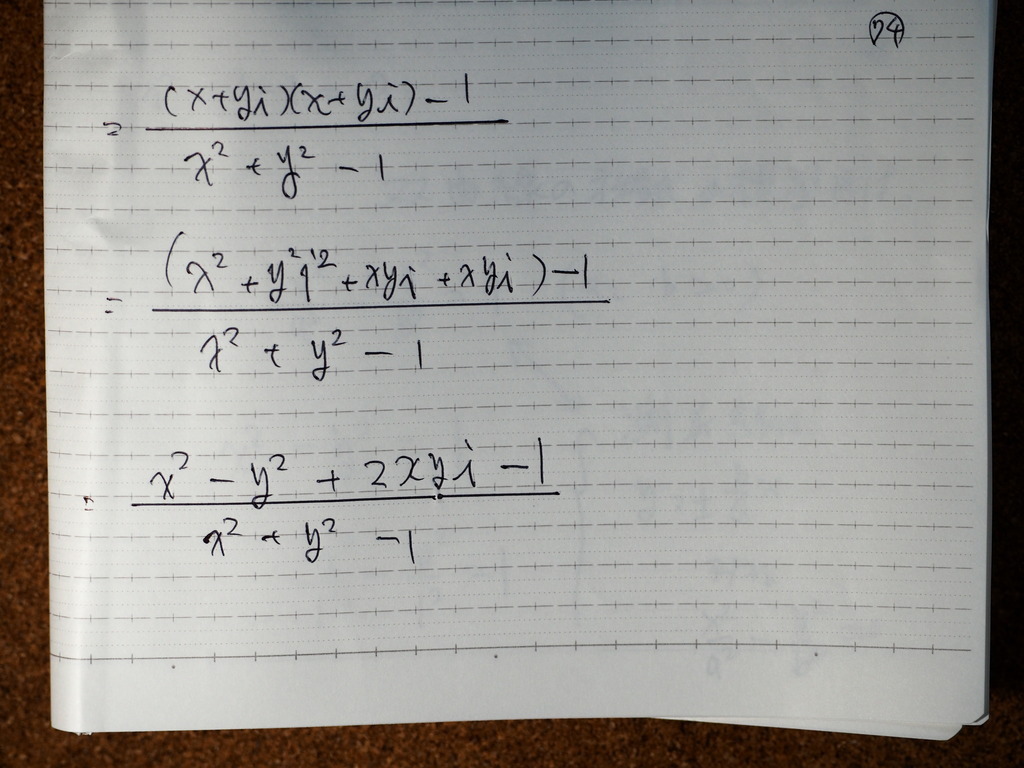 74
= (x+yi)(x+yi)-1
x² + y² - 1
= (x² + y²i² + xyi + xyi) -1
x² + y² - 1
= x² - y² + 2xyi - 1
x² + y² - 1